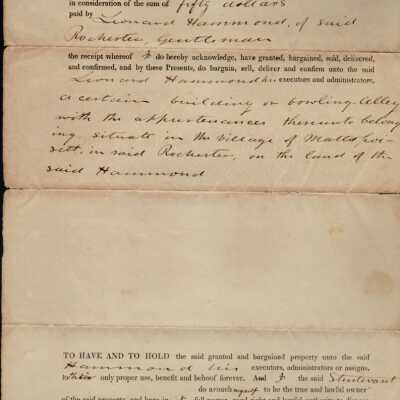 in consideration of the sum of fifty dollars
paid by Leonard Hammond, of said
Rochester, Gentleman
the receipt whereof I do hereby acknowledge, have granted, bargained, sold, delivered,
and confirmed, and by these Presents, do bargain, sell, deliver and confirm unto the said
Leonard Hammond his executors and administrators,
a certain building or bowling Alley
with the appurtenances thereunto belong
ing, situate in the village of Mattapoi-
sett, in said Rochester, on the land of the
said Hammond
TO HAVE AND TO HOLD the said granted and bargained property unto the said
Hammond his executors, administrators or assigns,
to their only proper use, benefit and behoof forever. And I the said Sturtevant
do avouch myself to be the true and lawful owner
of the said property, and have in full power, good right and lawful authority